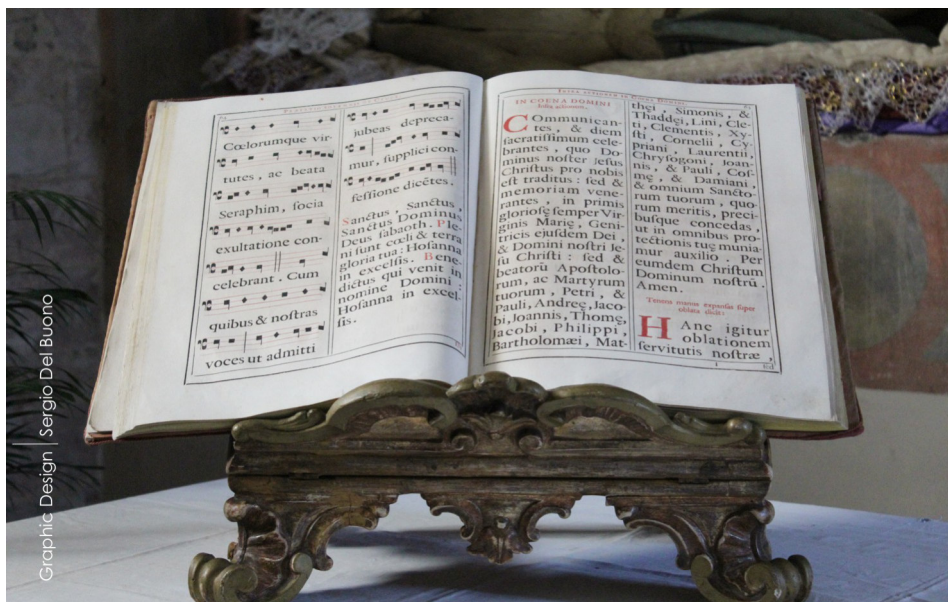 Cœlorumque vir-
tutes, ac beata
Seraphim, socia
exultatione con-
celebrant. Cum
quibus & noſtras
voces ut admitti
jubeas depreca-
mur, ſupplici con-
feſſione dicētes.
Sanctus, Sanctus,
Sanctus Dominus
Deus ſabaoth. Ple-
ni ſunt cœli & terra
gloria tua: Hoſanna
in excelſis. Bene-
dictus qui venit in
nomine Domini:
Hoſanna in excel-
ſis.
IN COENA DOMINI
Infra actionem.
COmmunican-
tes, & diem
ſacratiſſimum cele-
brantes, quo Do-
minus noſter Jeſus
Chriſtus pro nobis
eſt traditus: ſed &
memoriam vene-
rantes, in primis
glorioſę ſemper Vir-
ginis Marię, Geni-
tricis ejuſdem Dei,
& Domini noſtri Je-
ſu Chriſti: ſed &
beatorū Apoſtolo-
rum, ac Martyrum
tuorum, Petri, &
Pauli, Andreę, Jaco-
bi, Joannis, Thomę,
Jacobi, Philippi,
Bartholomæi, Mat-
thęi Simonis, &
Thaddęi, Lini, Cle-
ti, Clementis, Xy-
ſti, Cornelii, Cy-
priani, Laurentii,
Chryſogoni, Joan-
nis, & Pauli, Coſ-
mę, & Damiani,
& omnium Sanctó-
rum tuorum, quo-
rum meritis, preci-
buſque concedas,
ut in omnibus pro-
tectionis tuę munia-
mur auxilio. Per
eumdem Chriſtum
Dominum noſtrū.
Amen.
Tenens manus expanſas ſuper
oblata dicit:
HAnc igitur
oblationem
ſervitutis noſtræ,
Graphic Design | Sergio Del Buono